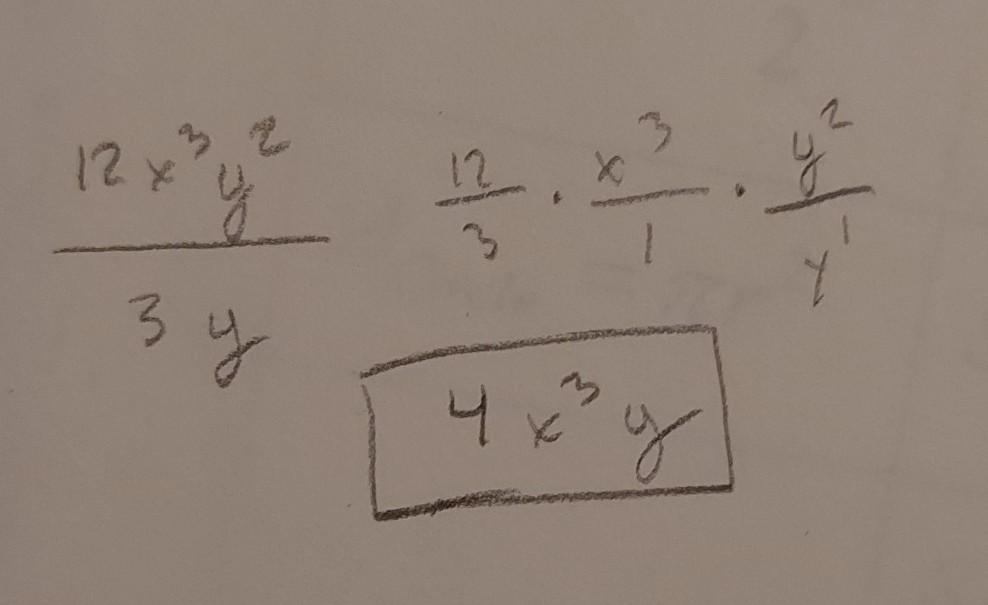 12x³y²/3y  12/3 · x³/1 · y²/y¹
4x³y